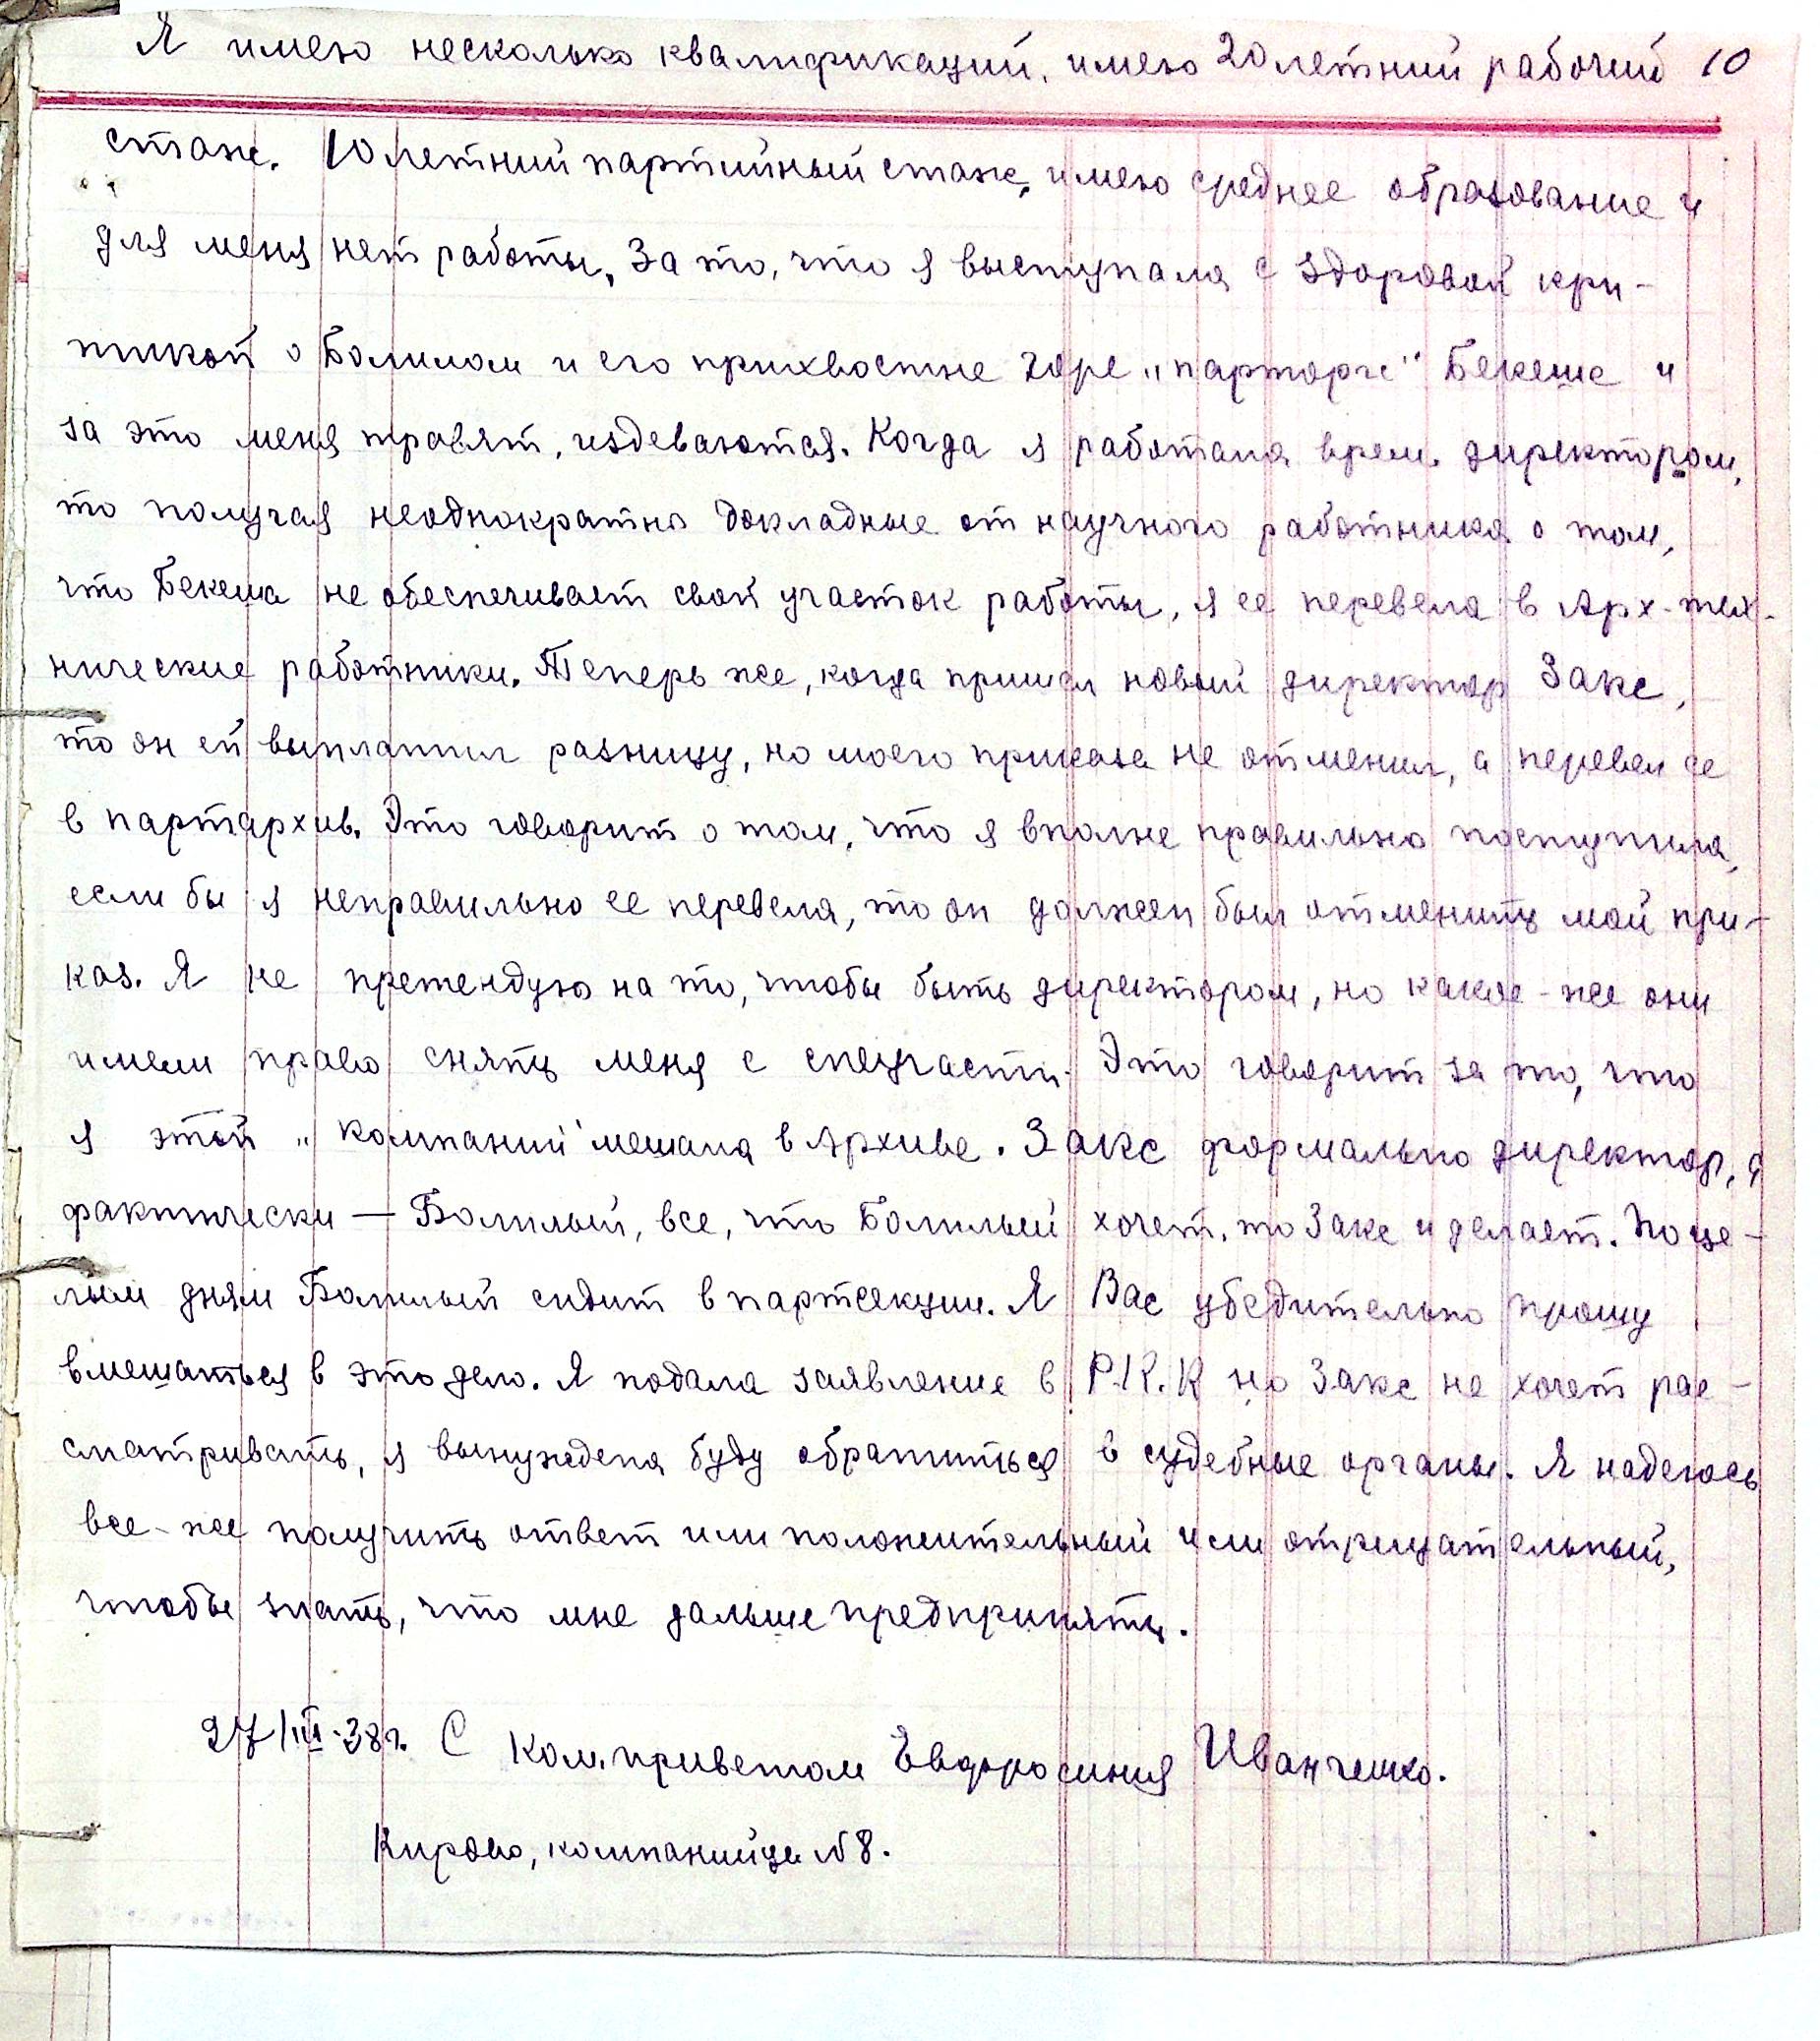 Я имею несколько квалификаций, имею 20 летний рабочий 10
стаж. 10 летний партийный стаж, имею среднее образование и
для меня нет работы, За то, что я выступала с здоровой кри-
тикой о Болилом и его прихвостне горе „парторге“ Бекеше и
за это меня травят, издеваются. Когда я работала врем. директором,
то получая неоднократно докладные от научного работника о том,
что Бекеша не обеспечивает свой участок работы, я ее перевела в Арх-тех-
нические работники. Теперь же, когда пришел новый директор Закс,
то он ей выплатил разницу, но моего приказа не отменил, а перевел ее
в партархив. Это говорит о том, что я вполне правильно поступила,
если бы я неправильно ее перевела, то он должен был отменить мой при-
каз. Я не претендую на то, чтобы быть директором, но какое-же они
имели право снять меня с спецчасти. Это говорит за то, что
я этой „компании“ мешала в Архиве. Закс формально директор, а
фактически — Болилый, все, что Болилый хочет, то Закс и делает. По це-
лым дням Болилый сидит в партсекции. Я Вас убедительно прошу
вмешаться в это дело. Я подала заявление в Р.К.К но Закс не хочет рас-
сматривать, я вынуждена буду обратиться в судебные органы. Я надеюсь
все-же получить ответ или положительный или отрицательный,
чтобы знать, что мне дальше предпринять.
27/III-38г. С ком. приветом Евфросиния Иванченко.
Кирово, компанийца №8.